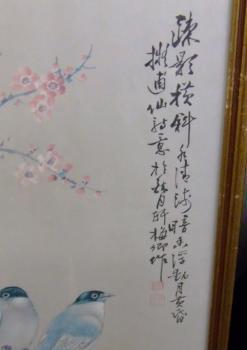 疎影横斜水清浅暗香浮動月黄昏
擬逋仙詩意於 月軒梅卿作